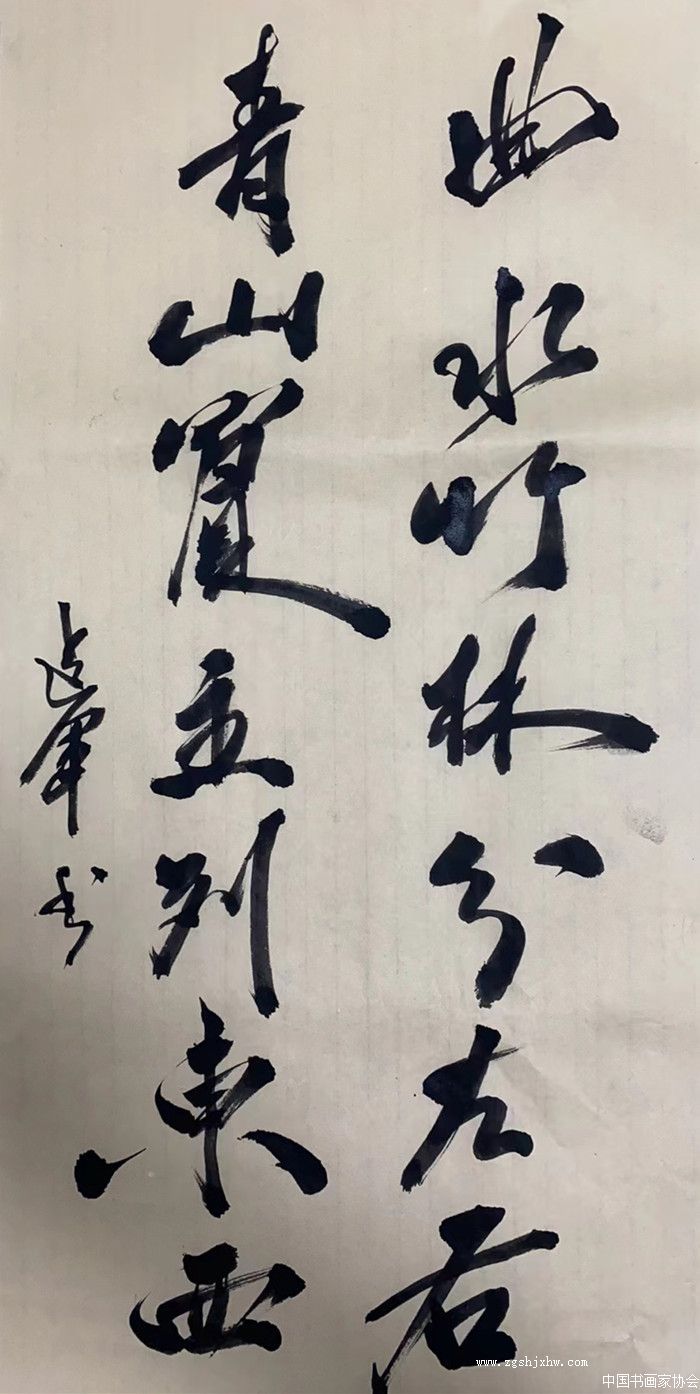 曲水竹林分左右
青山寞立列東西
書
www.zgshjxhw.com
中国书画家协会